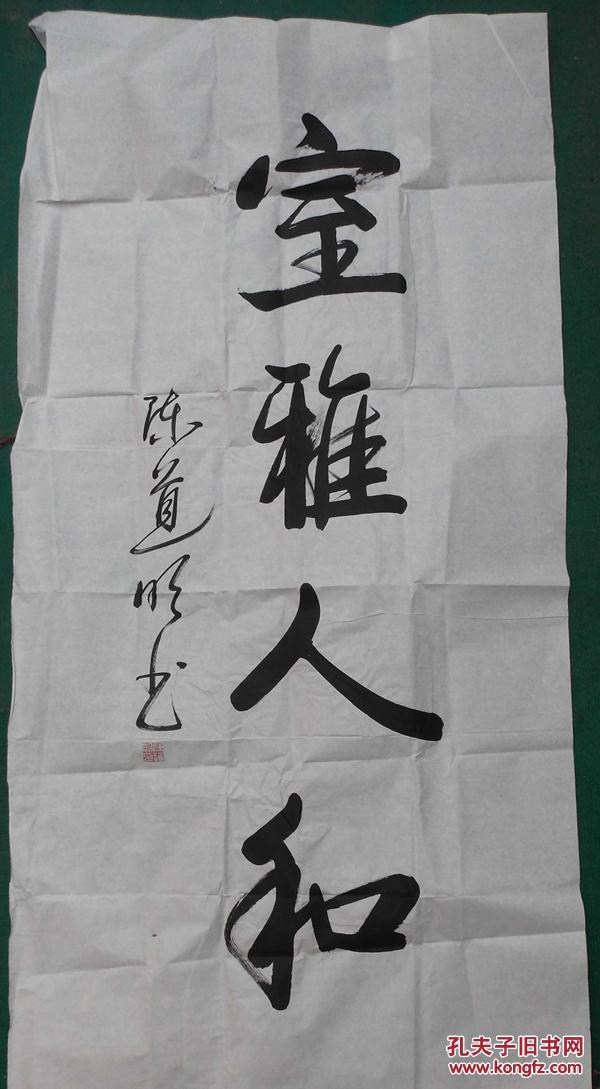 室雅人和
陈道明书
孔夫子旧书网
www.kongfz.com